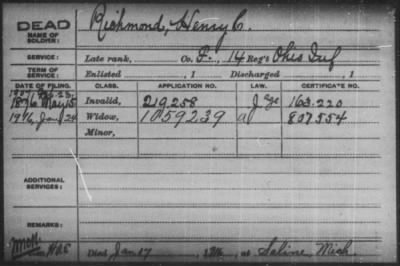 DEAD
NAME OF SOLDIER: Richmond, Henry C.
SERVICE: Late rank, Co. F., 14 Reg't Ohio Inf
TERM OF SERVICE: Enlisted , 1 Discharged , 1
DATE OF FILING. CLASS. APPLICATION NO. LAW. CERTIFICATE NO.
1876 May 15 Invalid, 219,258 163.220
1916, Jan 24 Widow, 1059239 807.554
Minor,
ADDITIONAL SERVICES:
REMARKS:
Died Jan 17, 1916, at Saline Mich